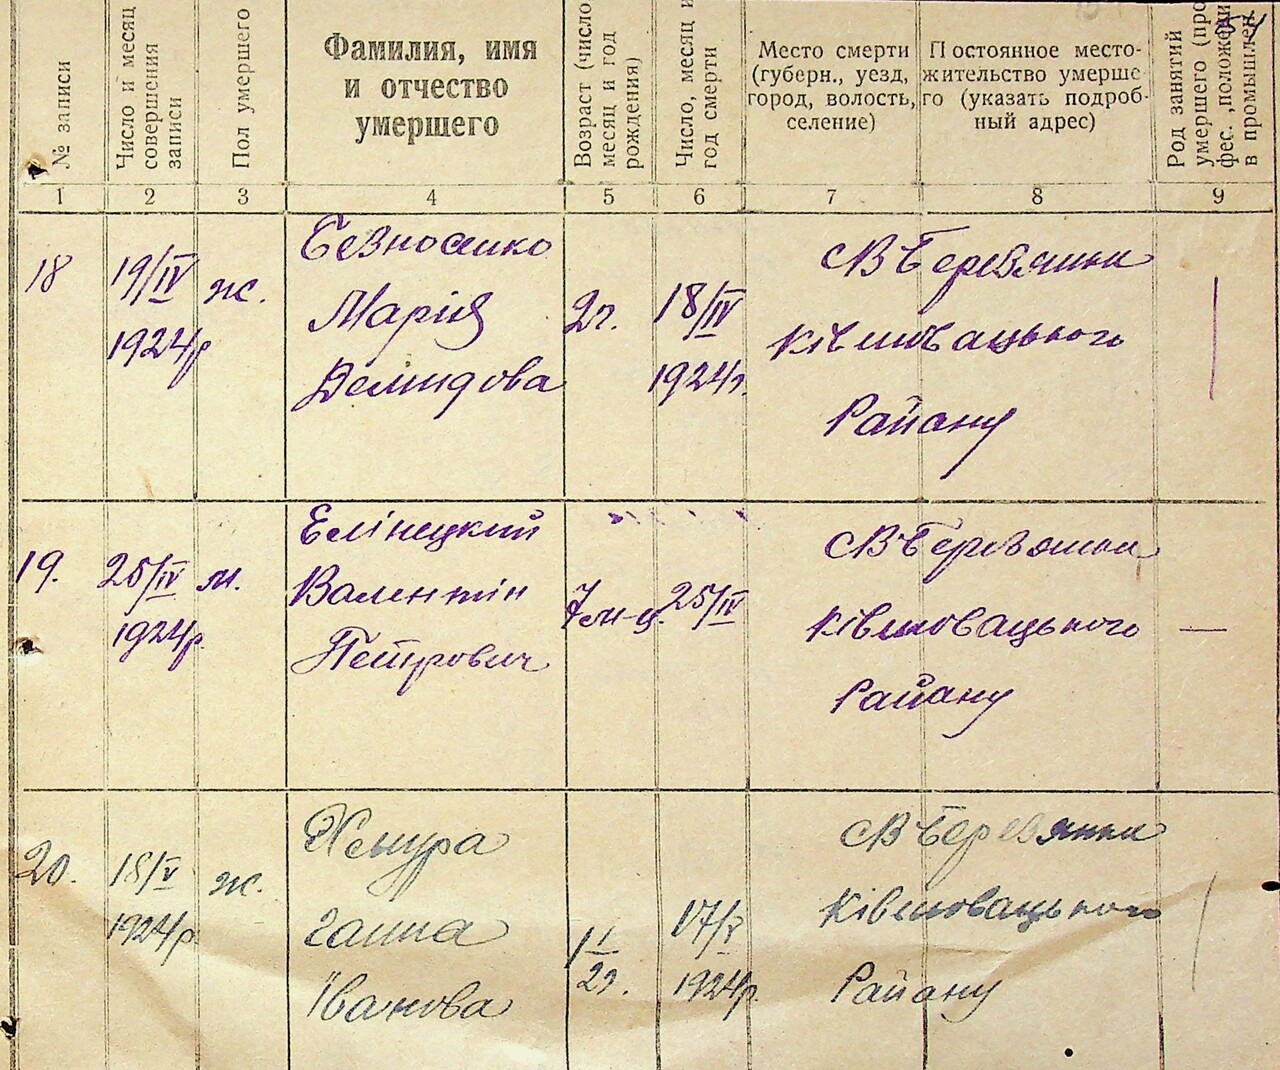 54
№ записи
Число и месяц
совершения
записи
Пол умершего
Фамилия, имя
и отчество
умершего
Возраст (число
месяц и год
рождения)
Число, месяц и
год смерти
Место смерти
(губерн., уезд,
город, волость,
селение)
Постоянное место-
жительство умерше
го (указать подроб-
ный адрес)
Род занятий
умершего (про
фес., положен
в промышлен.
1 2 3 4 5 6 7 8 9
18
19/IV
1924р
ж.
Безносенко
Марія
Демидова
2г.
18/IV
1924г.
с. В Березянки
Ківшовацького
Райану
19.
25/IV
1924р.
м.
Елінецкий
Валентін
Петрович
7 м-ц.
25/IV
с. В Березянки
Ківшовацького
Райану
20.
18/V
1924р
ж.
Хмура
Ганна
Іванова
1 1/2г.
17/V
1924р.
с. В Березянки
Ківшовацького
Райану